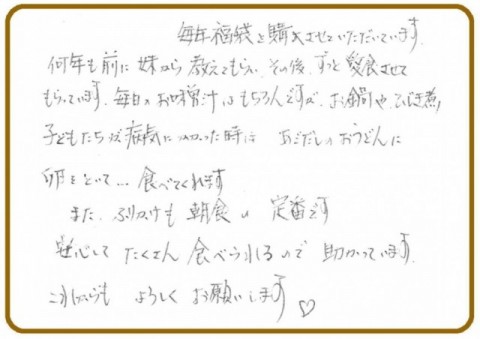 毎年福袋を購入させていただいています。
何年も前に妹から教えてもらい、その後、ずっと愛食させて
もらっています。毎日のお味噌汁はもちろんですが、お鍋や、ひじき煮、
子どもたちが病気にかかった時は あごだしのおうどんに
卵をといて… 食べてくれます
また、ふりかけも 朝食の 定番です
安心して たくさん 食べられるので 助かっています。
これからも よろしく お願いします♡